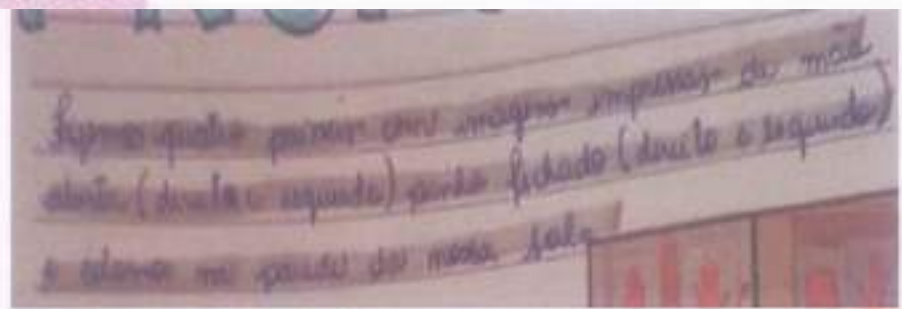 Fizemos quatro painéis com imagens impressas da mão
aberta (direita e esquerda) punho fechado (direito e esquerdo)
e colamos na parede da nossa sala